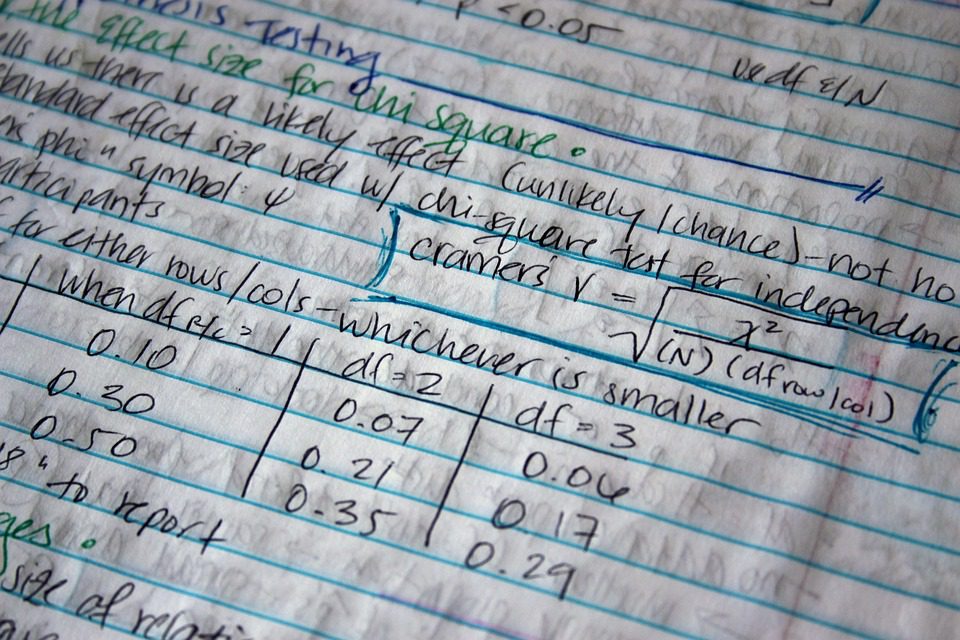 Testing
P < 0.05
use df & N
the effect size for chi square.
us there is a likely effect (unlikely/chance) - not
standard effect size used w/ chi-square test for independence
phi" symbol: φ
participants
cramers' V = √ χ² / (N)(df row/col)
for either rows/cols - whichever is smaller
when df r/c = 1 | df = 2 | df = 3
0.10 | 0.07 | 0.06
0.30 | 0.21 | 0.17
0.50 | 0.35 | 0.29
" to report
size of